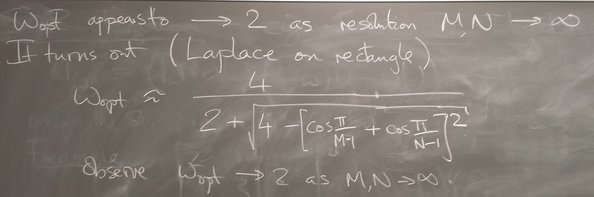 Wopt appears to → 2 as resolution M,N → ∞
It turns out (Laplace on rectangle)
Wopt ≈ 4 / (2 + √(4 - [cos π/(M-1) + cos π/(N-1)]²))
Observe Wopt → 2 as M,N → ∞.